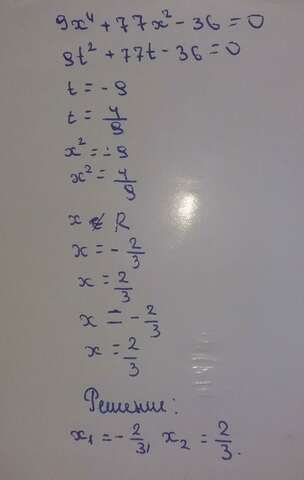 9x⁴ + 77x² - 36 = 0
9t² + 77t - 36 = 0
t = - 9
t = 4/9
x² = - 9
x² = 4/9
x ∉ R
x = - 2/3
x = 2/3
x = - 2/3
x = 2/3
Решение:
x₁ = - 2/3, x₂ = 2/3.